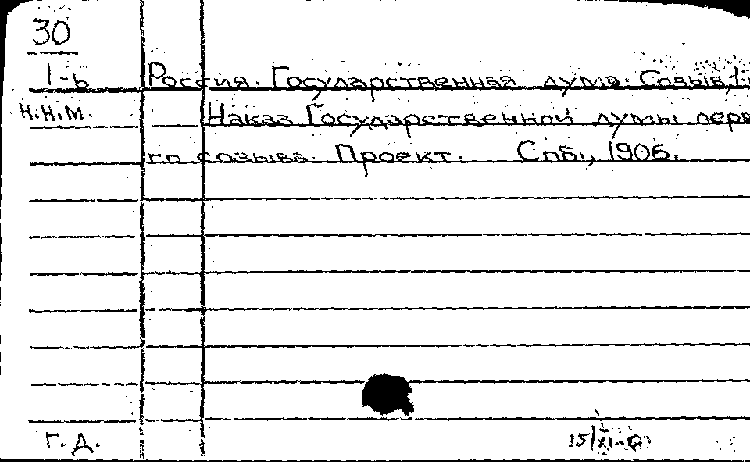 30
1-ь Россия. Государственная дума. Созыв 1.
Н.Н.М. Наказ Государственной думы перво
го созыва. Проект. Спб., 1906.
Г.Д.